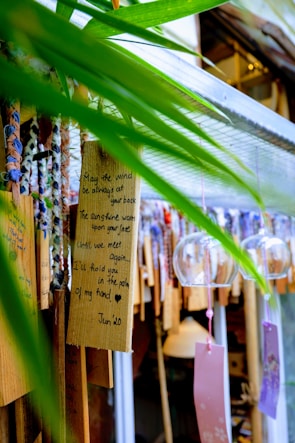 May the wind
be always at
your back
the sunshine warm
upon your face
Until we meet
again,
I'll hold you
in the palm
of my hand ♥
Jun '20